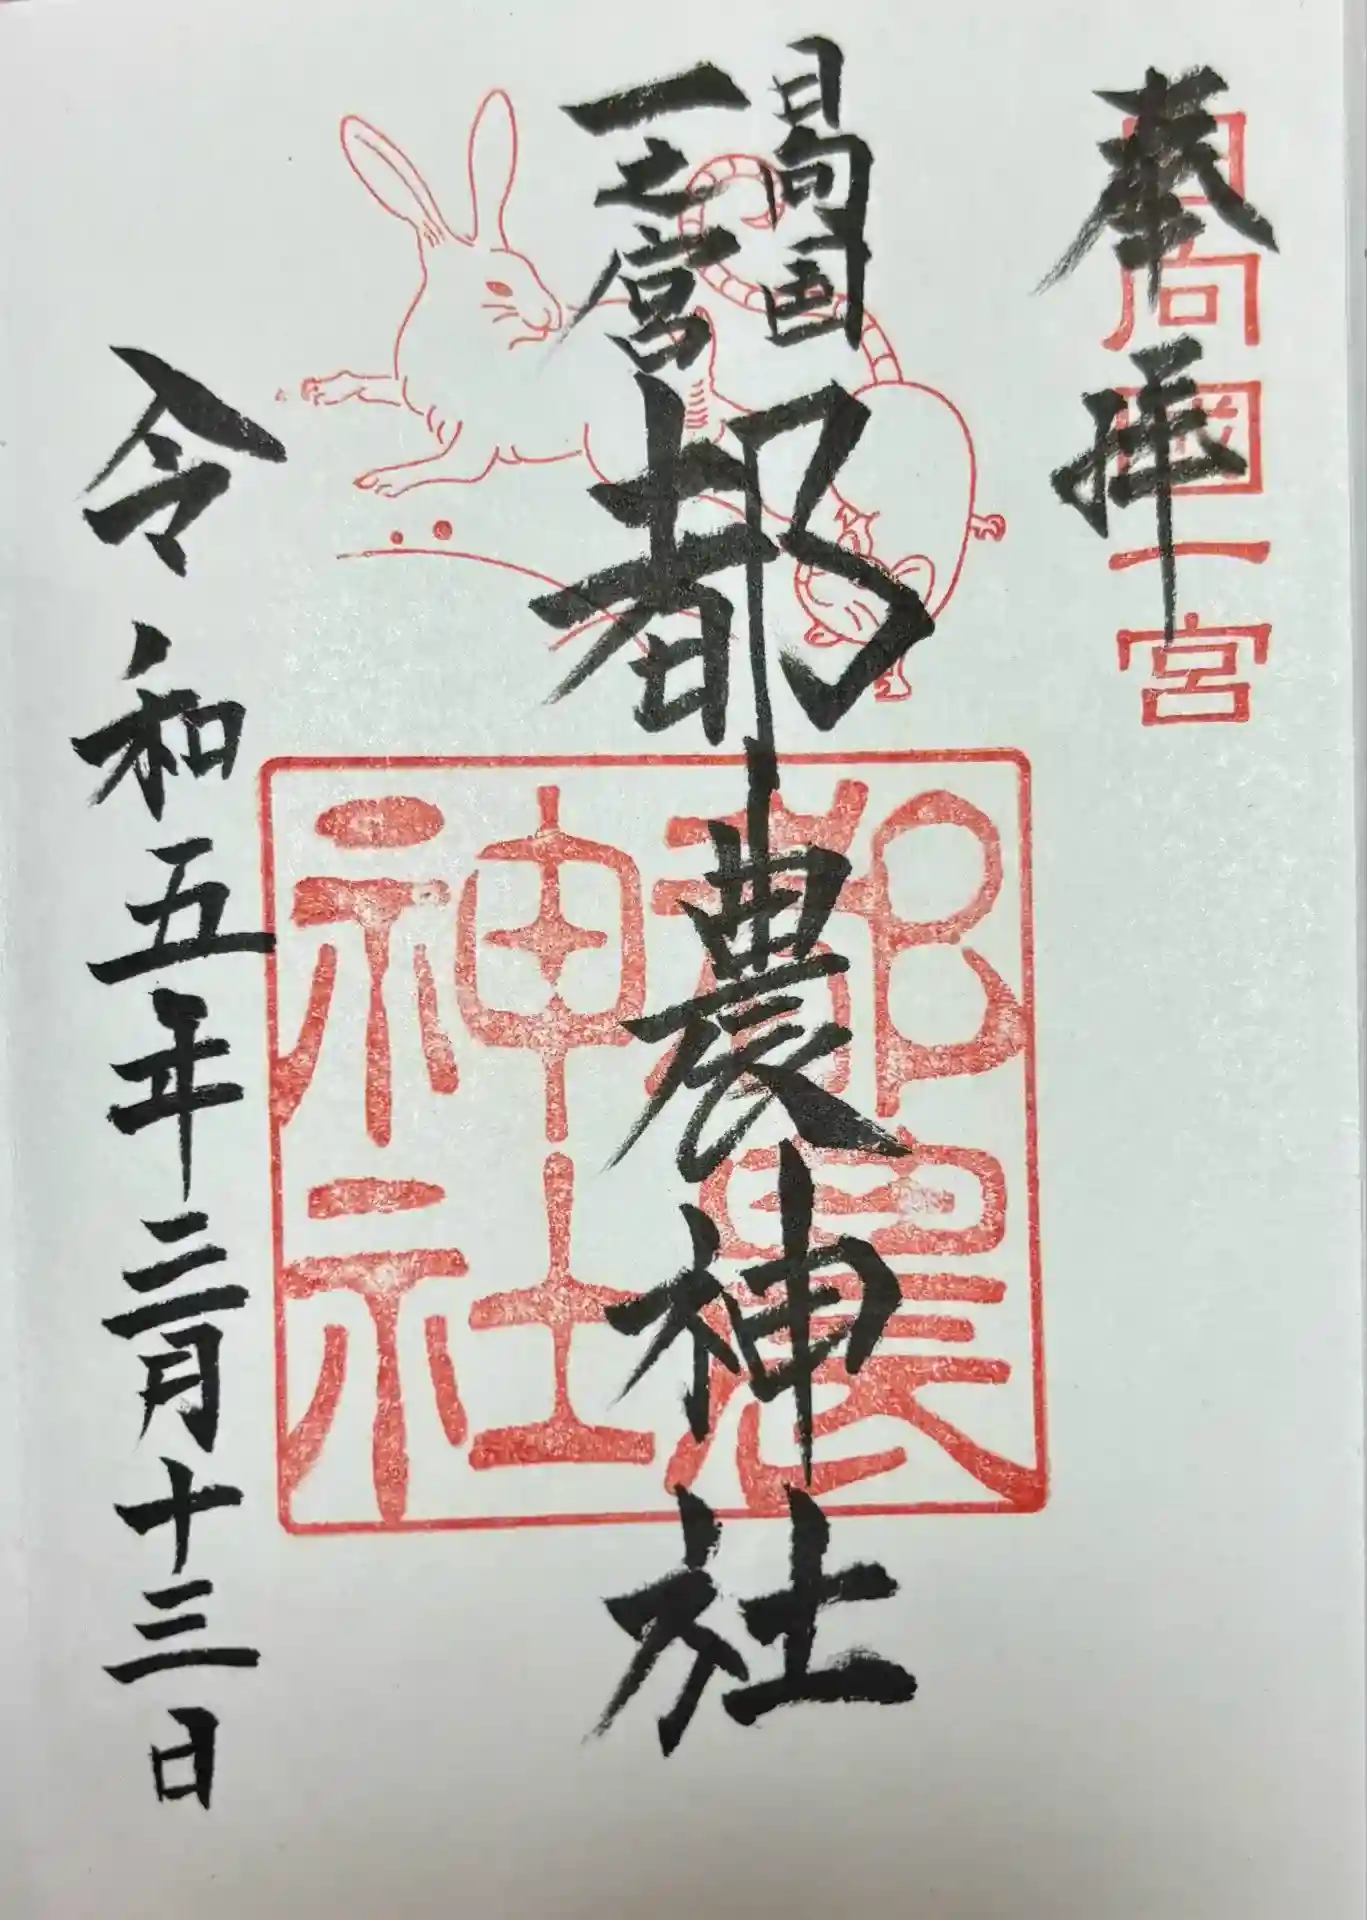 奉拝
日向國一宮
日向国
一之宮
都農神社
都農
神社
令和五年三月十三日